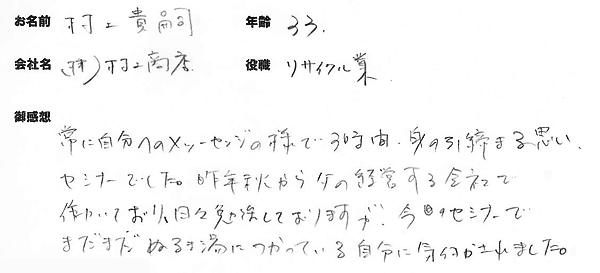 お名前 村上貴嗣 年齢 33.
会社名 (株)村上商店 役職 リサイクル業
御感想
常に自分へのメッセージの様で3時間、身の引締まる思い、
セミナーでした。昨年秋から父の経営する会社で
働いており、日々勉強しておりますが、今回のセミナーで
まだまだぬるま湯につかっている自分に気付かされました。